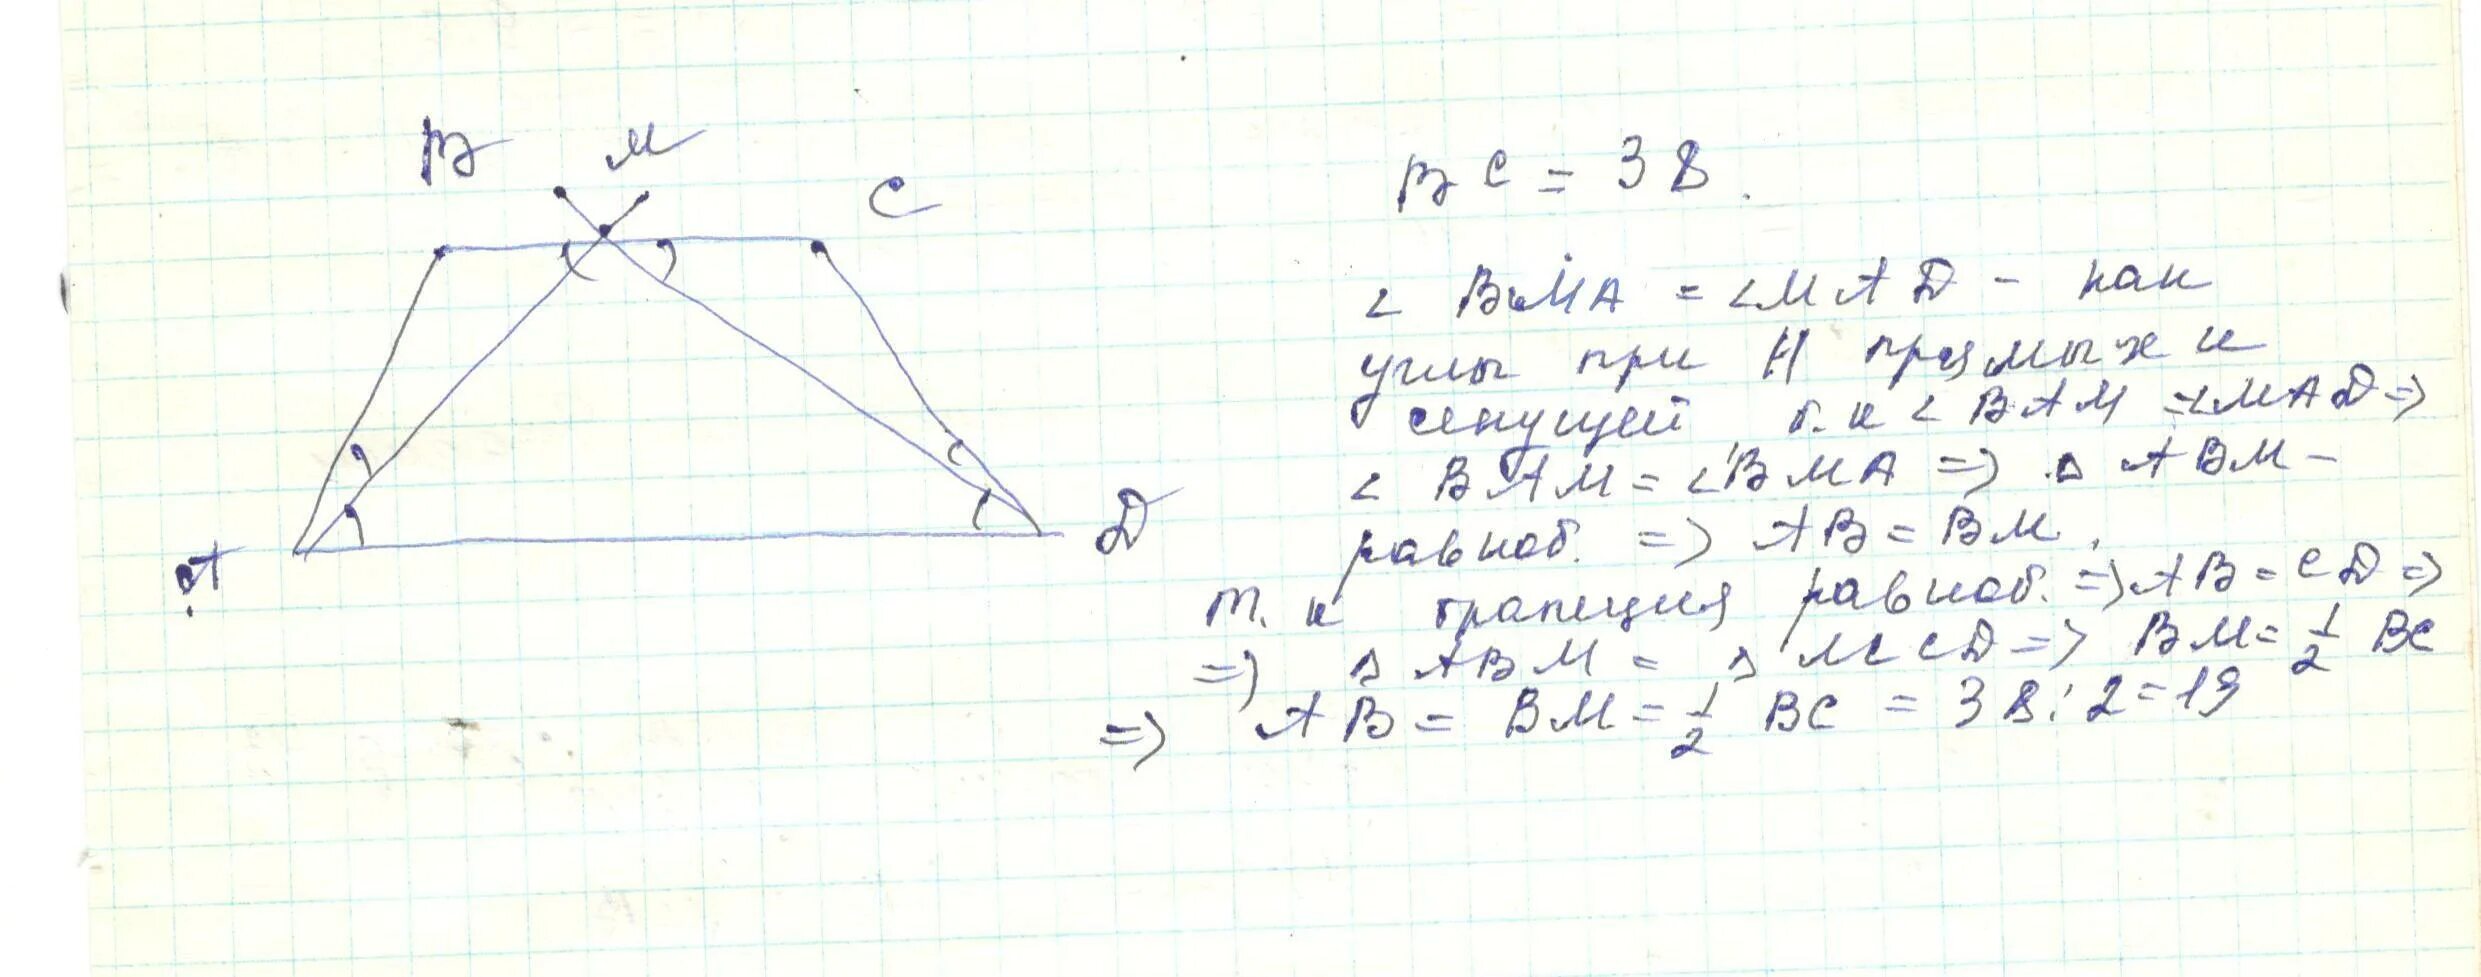 B M
C
A
D
BC = 38.
< BMA = <MAD - как
углы при || прямых и
секущей т.к < BAM =<MAD =>
< BAM = <BMA => △ ABM -
равноб. => AB = BM.
т.к трапеция равноб. => AB = CD =>
=> △ ABM = △ MCD => BM = 1/2 BC
=> AB = BM = 1/2 BC = 38:2=19